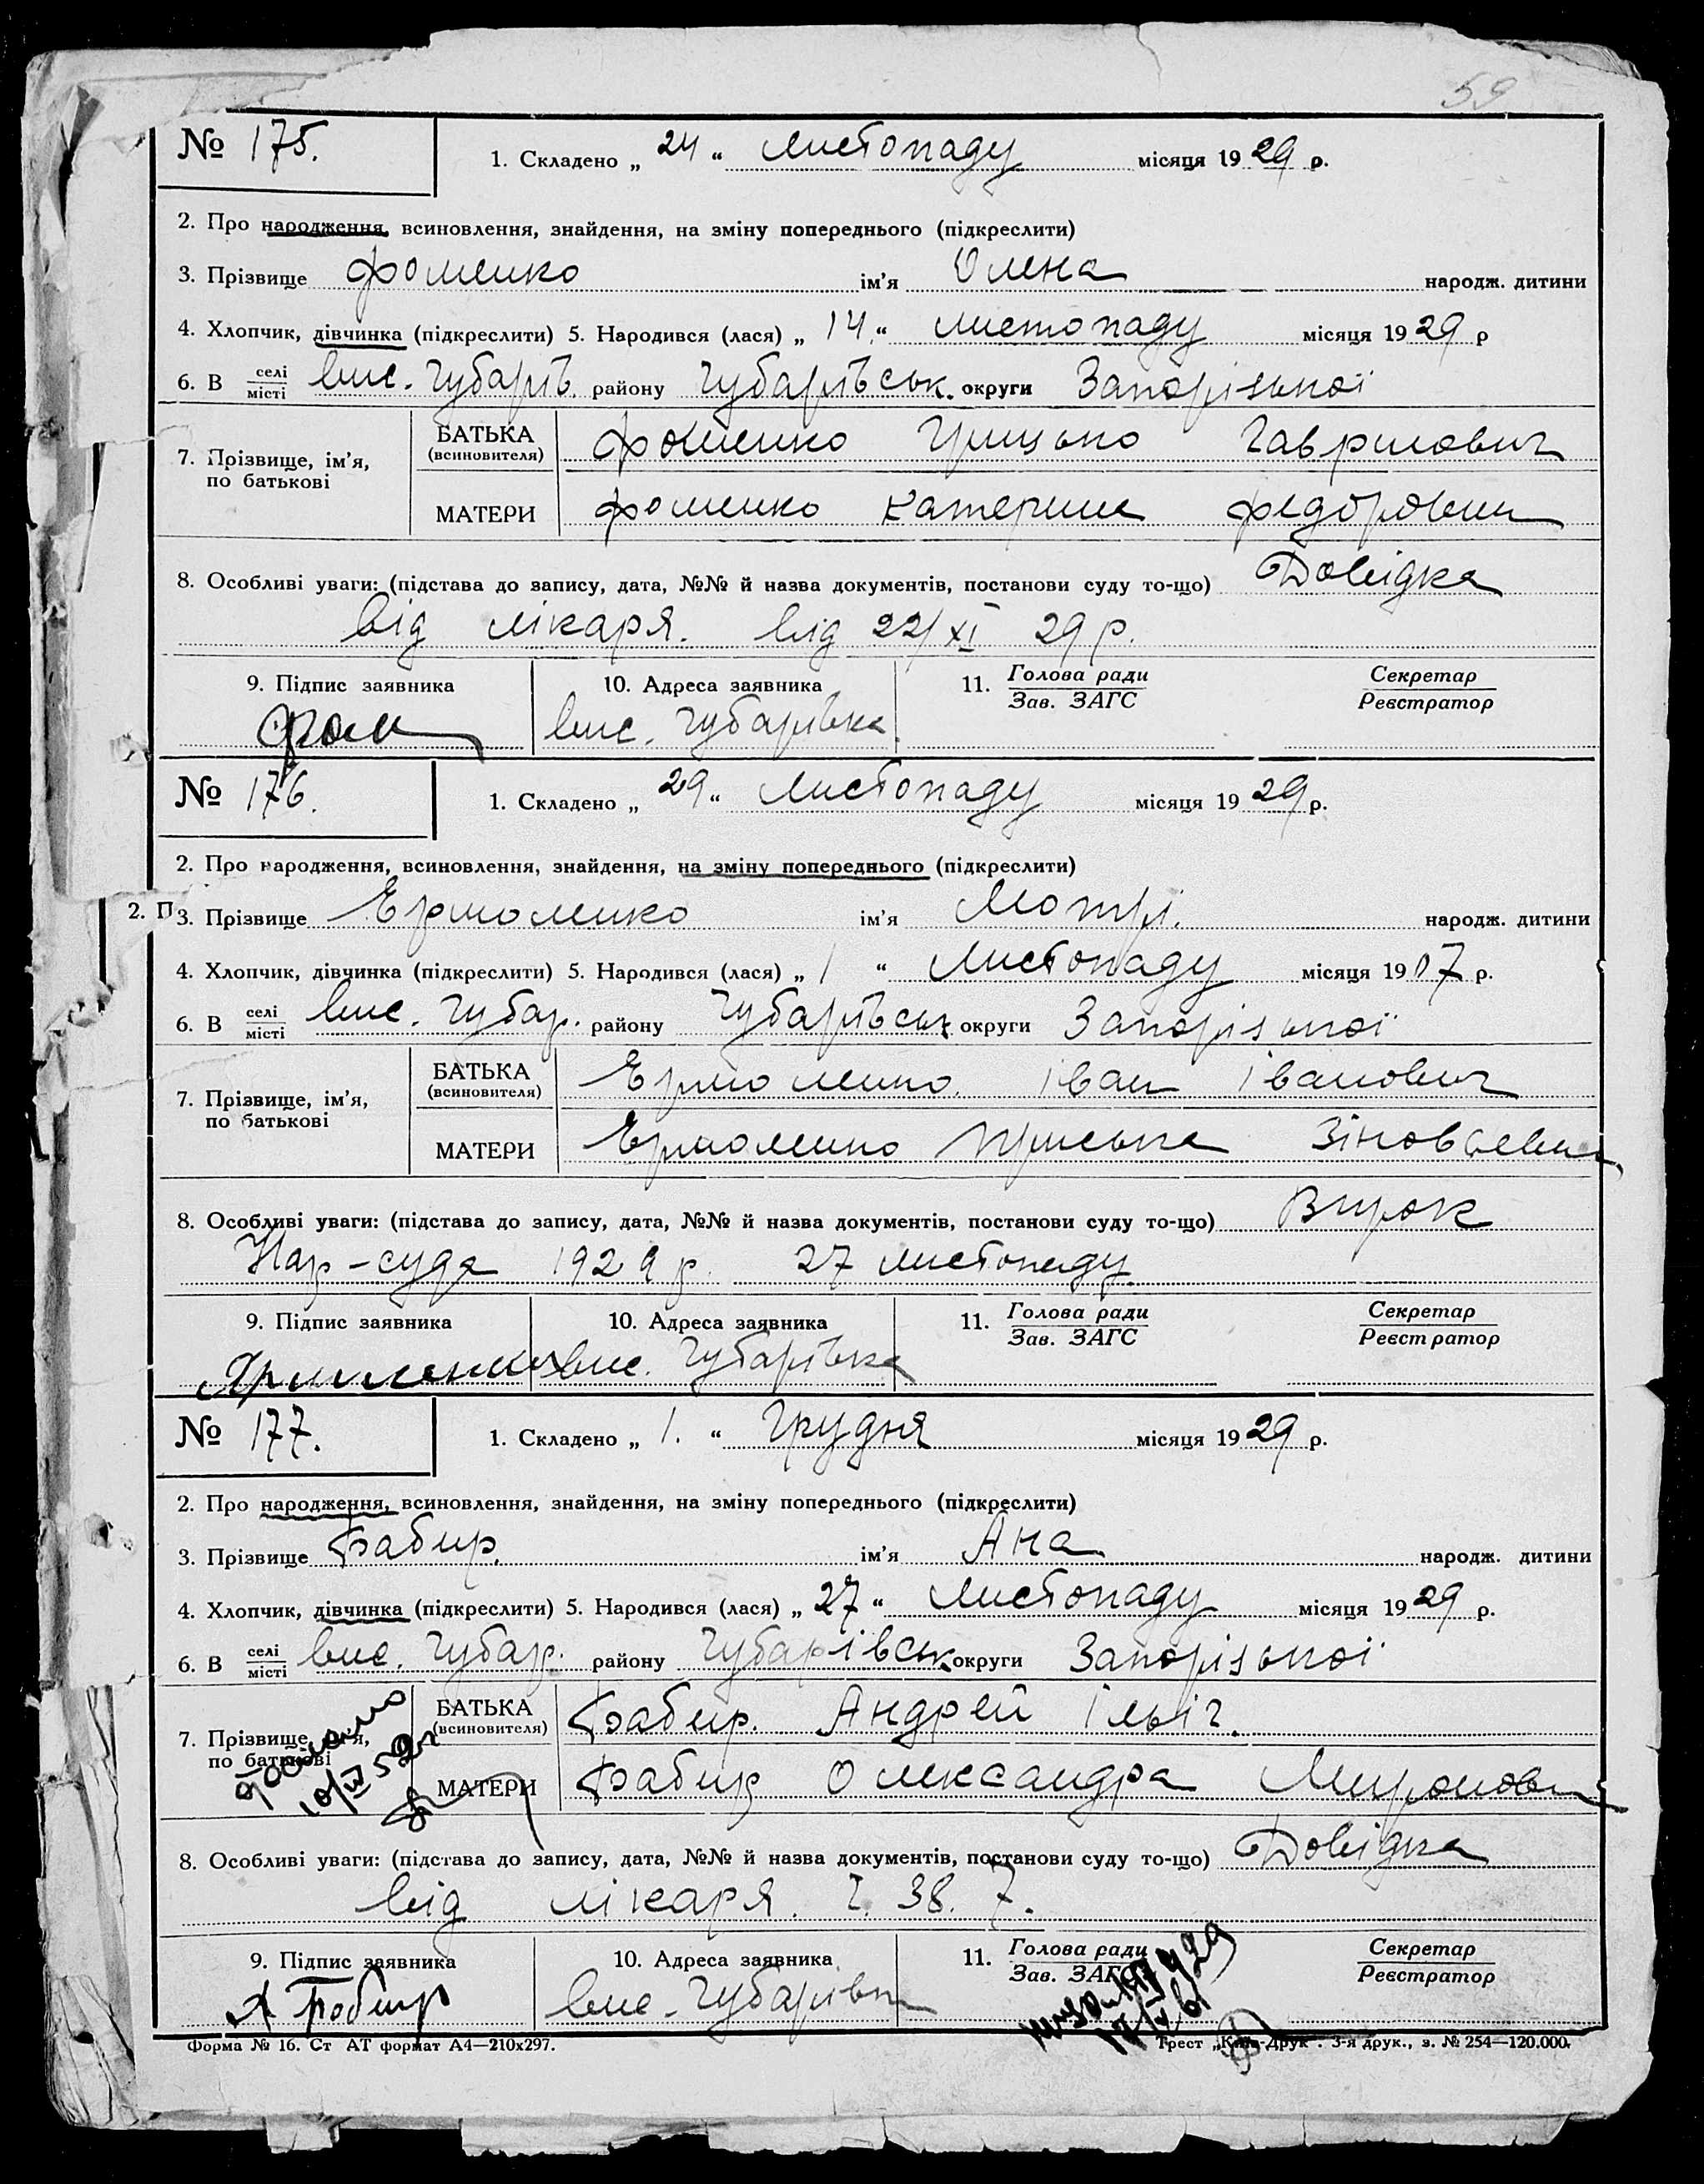 59
№ 175. 1. Складено „ 24 “ листопаду місяця 1929 р.
2. Про народження, всиновлення, знайдення, на зміну попереднього (підкреслити)
3. Прізвище Фоменко ім'я Олена народж. дитини
4. Хлопчик, дівчинка (підкреслити) 5. Народився (лася) „ 14 “ листопаду місяця 1929 р
6. В селі місті вис. Губарів. району Губарівськ. округи Запорізької
7. Прізвище, ім'я, по батькові БАТЬКА (всиновителя) Фоменко Грицько Гаврилович
МАТЕРИ Фоменко Катерина Федоровна
8. Особливі уваги: (підстава до запису, дата, №№ й назва документів, постанови суду то-що) Довідка
від лікаря. від 22/XI 29 р.
9. Підпис заявника 10. Адреса заявника 11. Голова ради Зав. ЗАГС Секретар Реєстратор
Фом вис. Губарівка
№ 176. 1. Складено „ 29 “ листопаду місяця 1929 р.
2. Про народження, всиновлення, знайдення, на зміну попереднього (підкреслити)
2. П
3. Прізвище Ермоленко ім'я Мотрі. народж. дитини
4. Хлопчик, дівчинка (підкреслити) 5. Народився (лася) „ 1 “ листопаду місяця 1907 р.
6. В селі місті вис. Губар. району Губарівськ округи Запорізької
7. Прізвище, ім'я, по батькові БАТЬКА (всиновителя) Ермоленко Іван Іванович
МАТЕРИ Ермоленко Приська Зіновєевна
8. Особливі уваги: (підстава до запису, дата, №№ й назва документів, постанови суду то-що) Вирок
Нар-суда 1929 р. 27 листопаду
9. Підпис заявника 10. Адреса заявника 11. Голова ради Зав. ЗАГС Секретар Реєстратор
вис. Губарівка
№ 177. 1. Складено „ 1. “ Грудня місяця 1929 р.
2. Про народження, всиновлення, знайдення, на зміну попереднього (підкреслити)
3. Прізвище Бабир. ім'я Ана народж. дитини
4. Хлопчик, дівчинка (підкреслити) 5. Народився (лася) „ 27 “ листопаду місяця 1929 р.
6. В селі місті вис. Губар. району Губарівськ округи Запорізької
7. Прізвище, ім'я, по батькові БАТЬКА (всиновителя) Бабир. Андрей Ільіч.
МАТЕРИ Бабир Олександра Мироновн
8. Особливі уваги: (підстава до запису, дата, №№ й назва документів, постанови суду то-що) Довідка
від лікаря. ч. 38. 7.
9. Підпис заявника 10. Адреса заявника 11. Голова ради Зав. ЗАГС Секретар Реєстратор
А Бабир вис. Губарівк
Форма № 16. Ст АТ формат А4—210х297. Трест „Київ-Друк". 3-я друк., з. № 254—120.000.